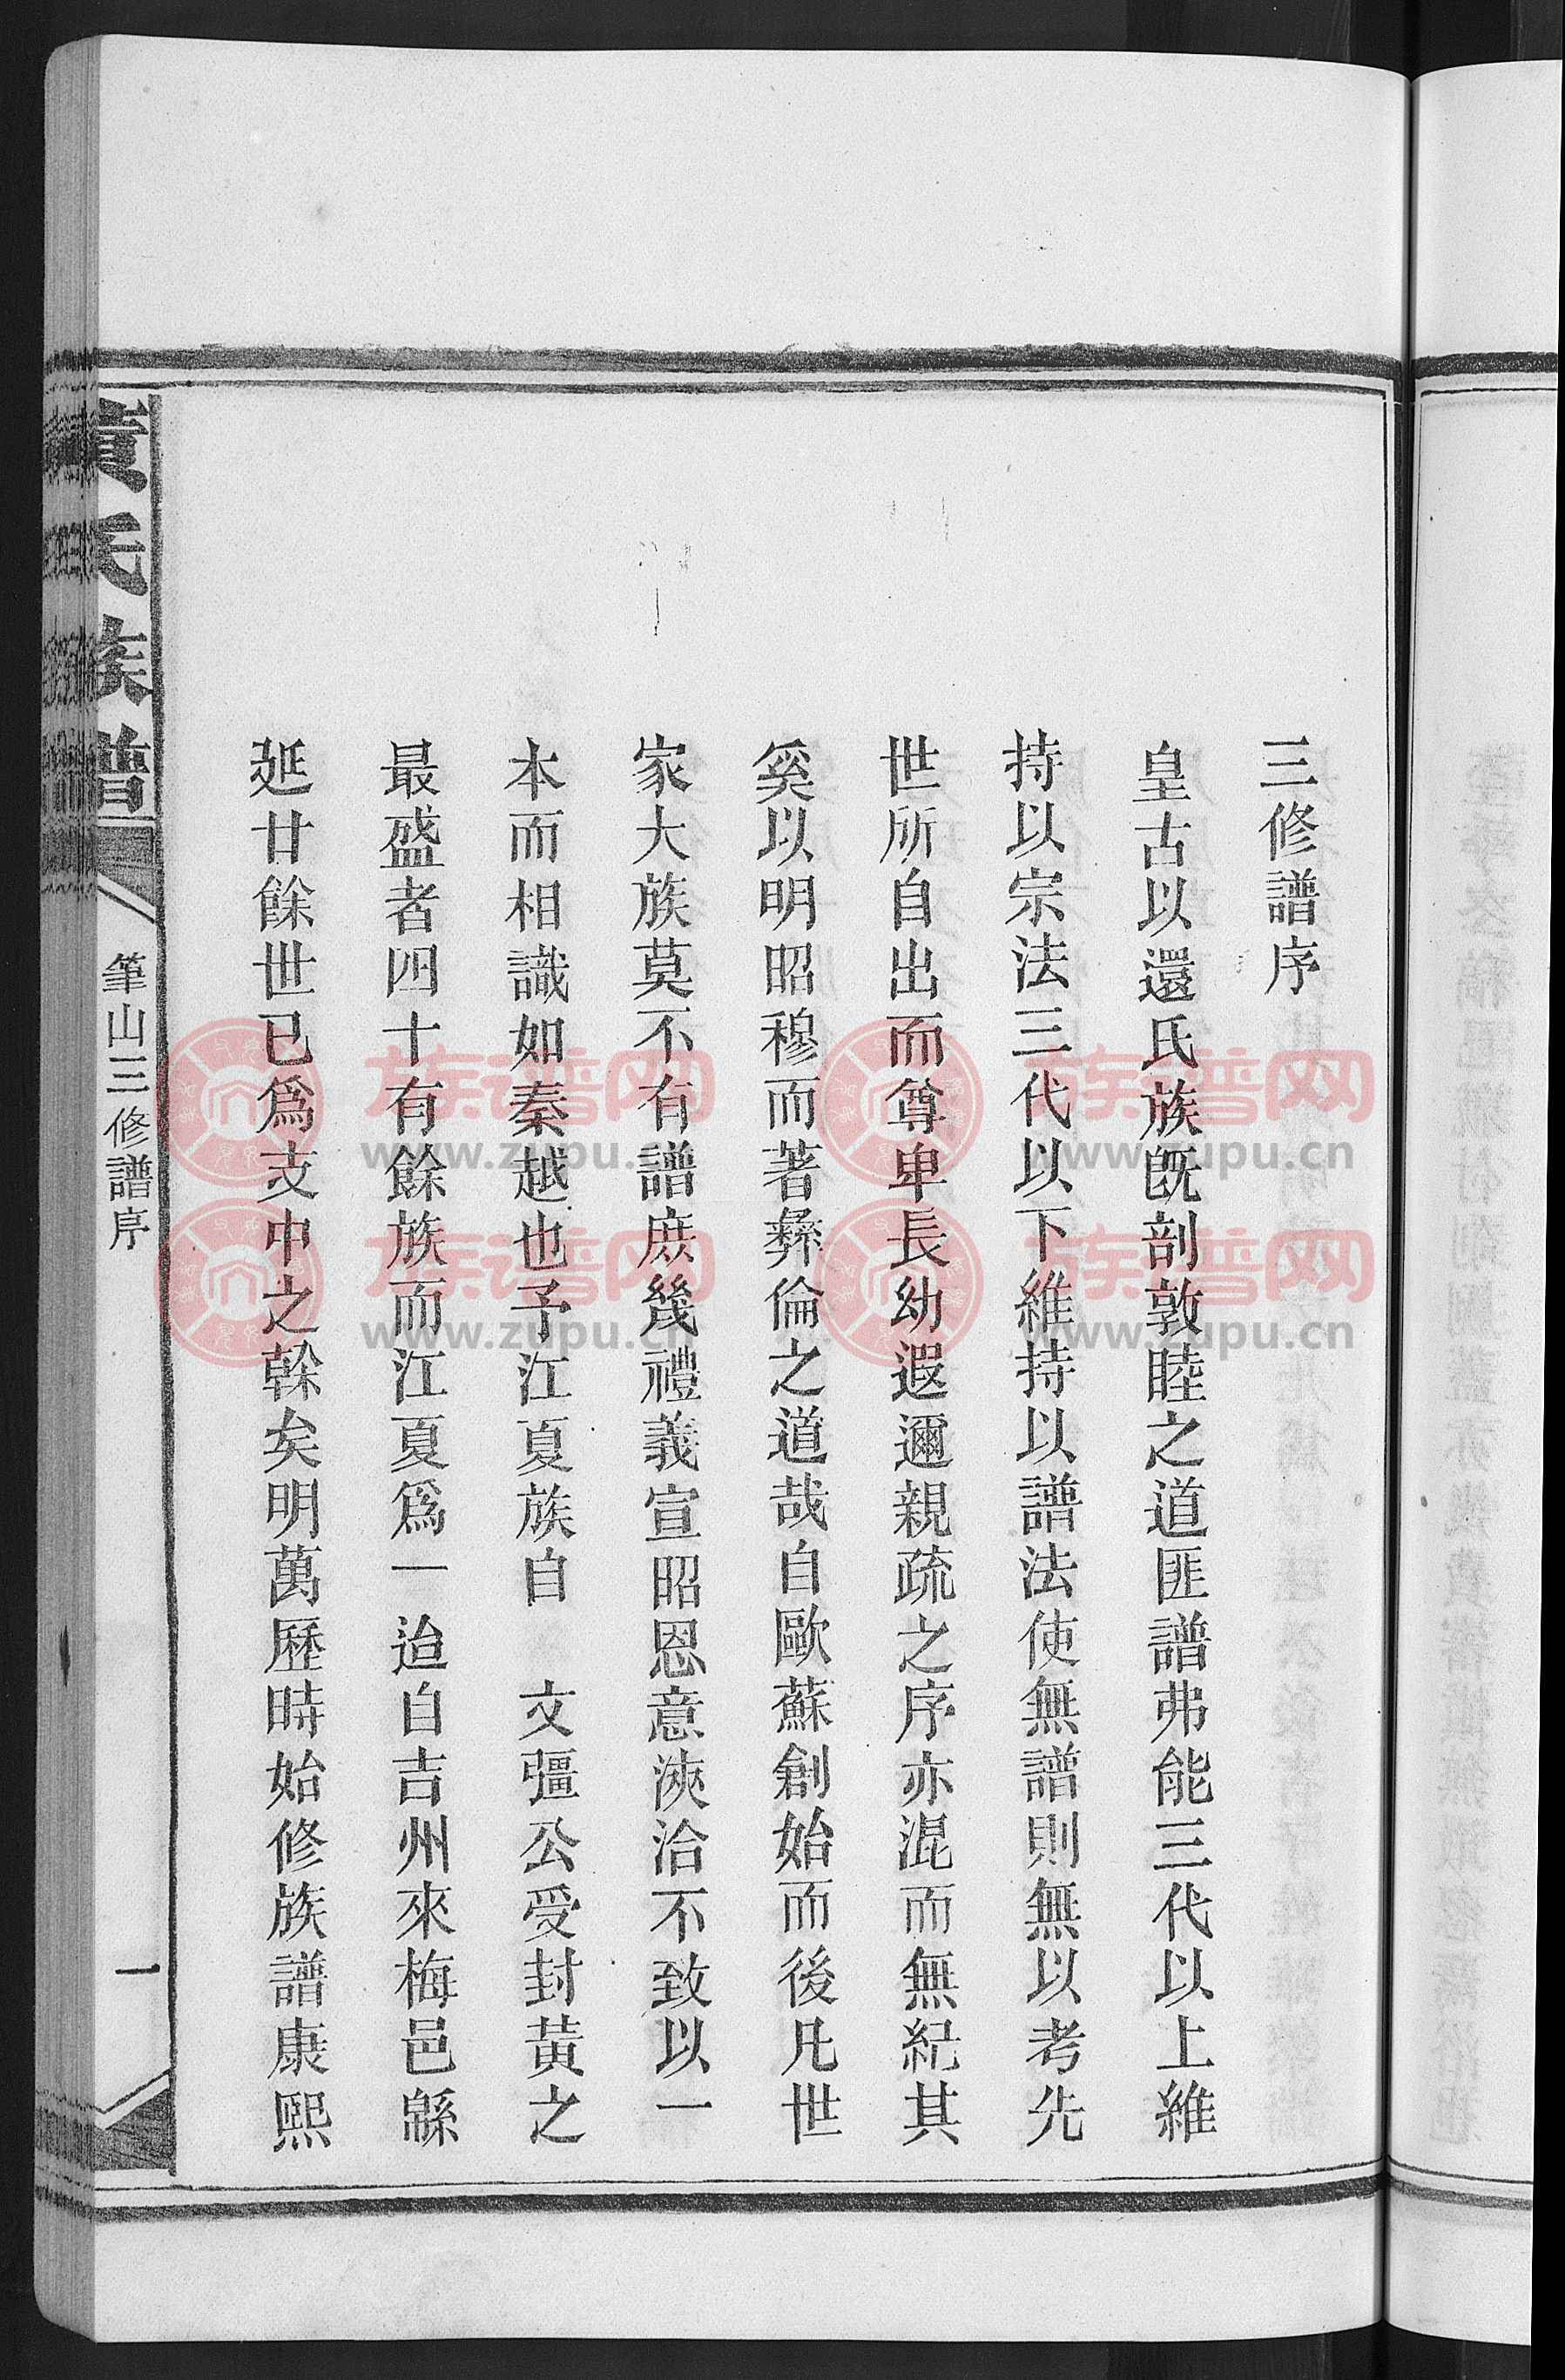 三修譜序
皇古以還氏族既剖敦睦之道匪譜弗能三代以上維
持以宗法三代以下維持以譜法使無譜則無以考先
世所自出而尊卑長幼遐邇親疏之序亦混而無紀其
奚以明昭穆而著彝倫之道哉自歐蘇創始而後凡世
家大族莫不有譜庶幾禮義宣昭恩意浹洽不致以一
本而相識如秦越也予江夏族自　文彊公受封黃之
最盛者四十有餘族而江夏爲一迨自吉州來梅邑緜
延廿餘世已爲支中之榦矣明萬歷時始修族譜康熙
黃氏族譜
筆山三修譜序
一
族谱网
www.zupu.cn
族谱网
www.zupu.cn
族谱网
www.zupu.cn
族谱网
www.zupu.cn